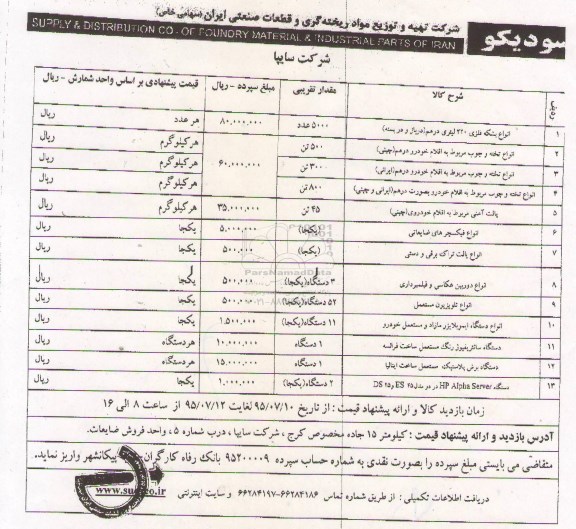 سودیکو
شرکت تهیه و توزیع مواد ریخته‌گری و قطعات صنعتی ایران (سهامی خاص)
SUPPLY & DISTRIBUTION CO - OF FOUNDRY MATERIAL & INDUSTRIAL PARTS OF IRAN
شرکت سایپا
ردیف شرح کالا مقدار تقریبی مبلغ سپرده - ریال قیمت پیشنهادی بر اساس واحد شمارش - ریال
۱ انواع بشکه فلزی ۲۲۰ لیتری درهم(درباز و در بسته) ۵۰۰۰ عدد ۸۰,۰۰۰,۰۰۰ هر عدد ریال
۲ انواع تخته و چوب مربوط به اقلام خودرو درهم(چینی) ۵۰۰ تن هرکیلوگرم ریال
۳ انواع تخته و چوب مربوط به اقلام خودرو درهم(ایرانی) ۳۰۰ تن ۶۰,۰۰۰,۰۰۰ هرکیلوگرم ریال
۴ انواع تخته و چوب مربوط به اقلام خودرو بصورت درهم(ایرانی و چینی) ۸۰۰ تن هرکیلوگرم ریال
۵ پالت آهنی مربوط به اقلام خودروی(چینی) ۴۵ تن ۳۵,۰۰۰,۰۰۰ هرکیلوگرم ریال
۶ انواع فیکسچر های ضایعاتی (یکجا) ۵,۰۰۰,۰۰۰ یکجا ریال
۷ انواع پالت تراک برقی و دستی (یکجا) ۵۰۰,۰۰۰ یکجا ریال
۸ انواع دوربین عکاسی و فیلمبرداری ۳ دستگاه(یکجا) ۵۰۰,۰۰۰ یکجا ریال
۹ انواع تلویزیون مستعمل ۵۲ دستگاه(یکجا) ۵۰۰,۰۰۰ یکجا ریال
۱۰ انواع دستگاه ایموبلایزر مازاد و مستعمل خودرو ۱۱ دستگاه(یکجا) ۱,۵۰۰,۰۰۰ یکجا ریال
۱۱ دستگاه سانتریفیوژ رنگ مستعمل ساخت فرانسه ۱ دستگاه ۱۰,۰۰۰,۰۰۰ هردستگاه ریال
۱۲ دستگاه برش پلاستیک مستعمل ساخت ایتالیا ۱ دستگاه ۱۵,۰۰۰,۰۰۰ هردستگاه ریال
۱۳ دستگاه HP Alpha Server در دو مدل ES ۴۵ و DS ۲۵ ۲ دستگاه(یکجا) ۱,۰۰۰,۰۰۰ یکجا ریال
زمان بازدید کالا و ارائه پیشنهاد قیمت : از تاریخ ۹۵/۰۷/۱۰ لغایت ۹۵/۰۷/۱۲ از ساعت ۸ الی ۱۶
آدرس بازدید و ارائه پیشنهاد قیمت : کیلومتر ۱۵ جاده مخصوص کرج ، شرکت سایپا ، درب شماره ۵، واحد فروش ضایعات.
متقاضی می بایستی مبلغ سپرده را بصورت نقدی به شماره حساب سپرده ۹۵۲۰۰۰۰۹ بانک رفاه کارگران پیکانشهر واریز نماید.
دریافت اطلاعات تکمیلی : از طریق شماره تماس ۶۶۲۸۴۱۸۶-۶۶۲۸۴۱۹۷ و سایت اینترنتی
ParsNamadData